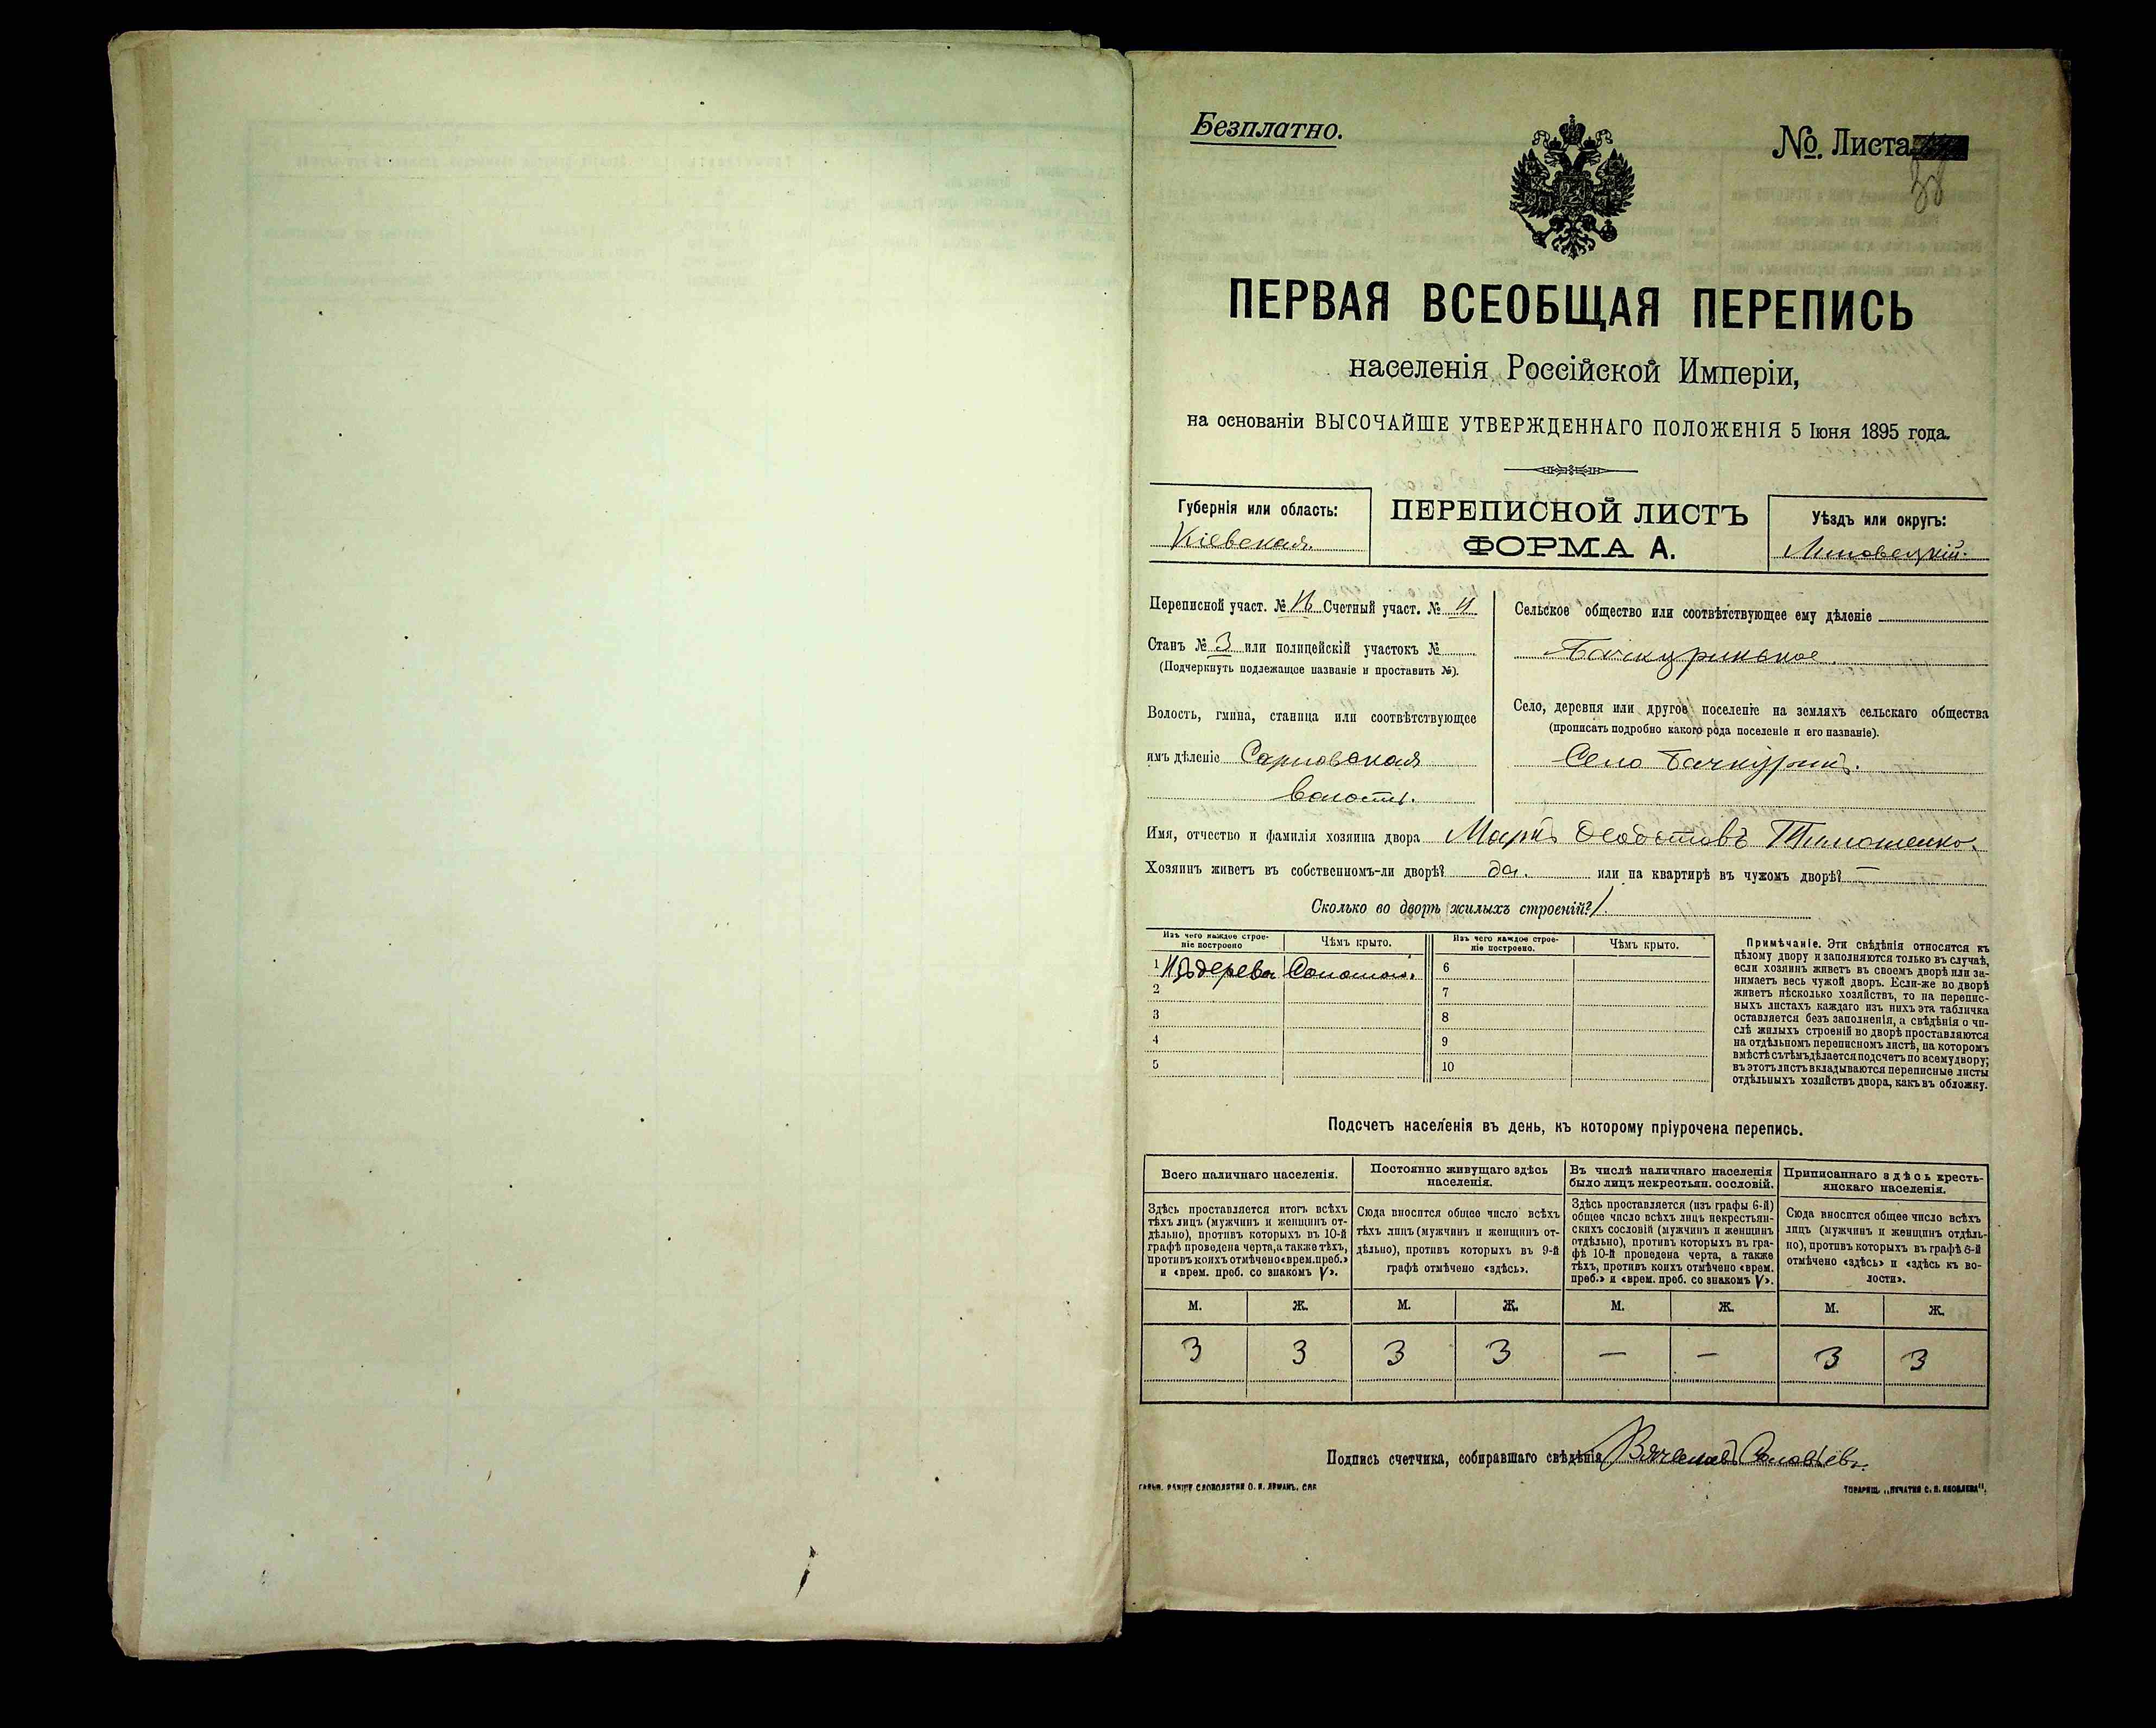 Безплатно.
№. Листа
38
ПЕРВАЯ ВСЕОБЩАЯ ПЕРЕПИСЬ
населенія Россійской Имперіи,
на основаніи ВЫСОЧАЙШЕ УТВЕРЖДЕННАГО ПОЛОЖЕНІЯ 5 Іюня 1895 года.
Губернія или область:
Кіевская.
ПЕРЕПИСНОЙ ЛИСТЪ
ФОРМА А.
Уѣздъ или округъ:
Липовецкій.
Переписной участ. № Счетный участ. №
Станъ № 3 или полицейскій участокъ №
(Подчеркнуть подлежащое названіе и проставить №).
Волость, гмина, станица или соотвѣтствующее
имъ дѣленіе Сарновская
волость.
Сельское общество или соотвѣтствующее ему дѣленіе
Бачкуринское
Село, деревня или другое поселеніе на земляхъ сельскаго общества
(прописать подробно какого рода поселеніе и его названіе).
Село Бачкурино.
Имя, отчество и фамилія хозяина двора Ѳеодотовъ Тимошенко.
Хозяинъ живетъ въ собственномъ-ли дворѣ? да. или на квартирѣ въ чужомъ дворѣ? —
Сколько во дворѣ жилыхъ строеній? 1.
Изъ чего каждое строеніе построено
Чѣмъ крыто.
Изъ чего каждое строеніе построено.
Чѣмъ крыто.
1 Изъ дерева Соломой.
2
3
4
5
6
7
8
9
10
Примѣчаніе. Эти свѣдѣнія относятся къ
цѣлому двору и заполняются только въ случаѣ,
если хозяинъ живетъ въ своемъ дворѣ или за-
нимаетъ весь чужой дворъ. Если-же во дворѣ
живетъ нѣсколько хозяйствъ, то на перепис-
ныхъ листахъ каждаго изъ нихъ эта табличка
оставляется безъ заполненія, а свѣдѣнія о чи-
слѣ жилыхъ строеній во дворѣ проставляются
на отдѣльномъ переписномъ листѣ, на которомъ
вмѣстѣ съ тѣмъ дѣлается подсчетъ по всему двору;
въ этотъ листъ вкладываются переписные листы
отдѣльныхъ хозяйствъ двора, какъ въ обложку.
Подсчетъ населенія въ день, къ которому пріурочена перепись.
Всего наличнаго населенія.
Здѣсь проставляется итогъ всѣхъ
тѣхъ лицъ (мужчинъ и женщинъ от-
дѣльно), противъ которыхъ въ 10-й
графѣ проведена черта, а также тѣхъ,
противъ коихъ отмѣчено «врем. преб.»
и «врем. преб. со знакомъ V».
Постоянно живущаго здѣсь
населенія.
Сюда вносится общее число всѣхъ
тѣхъ лицъ (мужчинъ и женщинъ от-
дѣльно), противъ которыхъ въ 9-й
графѣ отмѣчено «здѣсь».
Въ числѣ наличнаго населенія
было лицъ некрестьян. сословій.
Здѣсь проставляется (изъ графы 6-й)
общее число всѣхъ лицъ некрестьян-
скихъ сословій (мужчинъ и женщинъ
отдѣльно), противъ которыхъ въ гра-
фѣ 10-й проведена черта, а также
тѣхъ, противъ коихъ отмѣчено «врем.
преб.» и «врем. преб. со знакомъ V».
Приписаннаго здѣсь кресть-
янскаго населенія.
Сюда вносится общее число всѣхъ
лицъ (мужчинъ и женщинъ отдѣль-
но), противъ которыхъ въ графѣ 6-й
отмѣчено «здѣсь» и «здѣсь къ во-
лости».
М. Ж. М. Ж. М. Ж. М. Ж.
3 3 3 3 — — 3 3
Подпись счетчика, собиравшаго свѣдѣнія Вячеславъ Соловьевъ.
ТОВАРИЩ. „ПЕЧАТНЯ С. П. ЯКОВЛЕВА“.